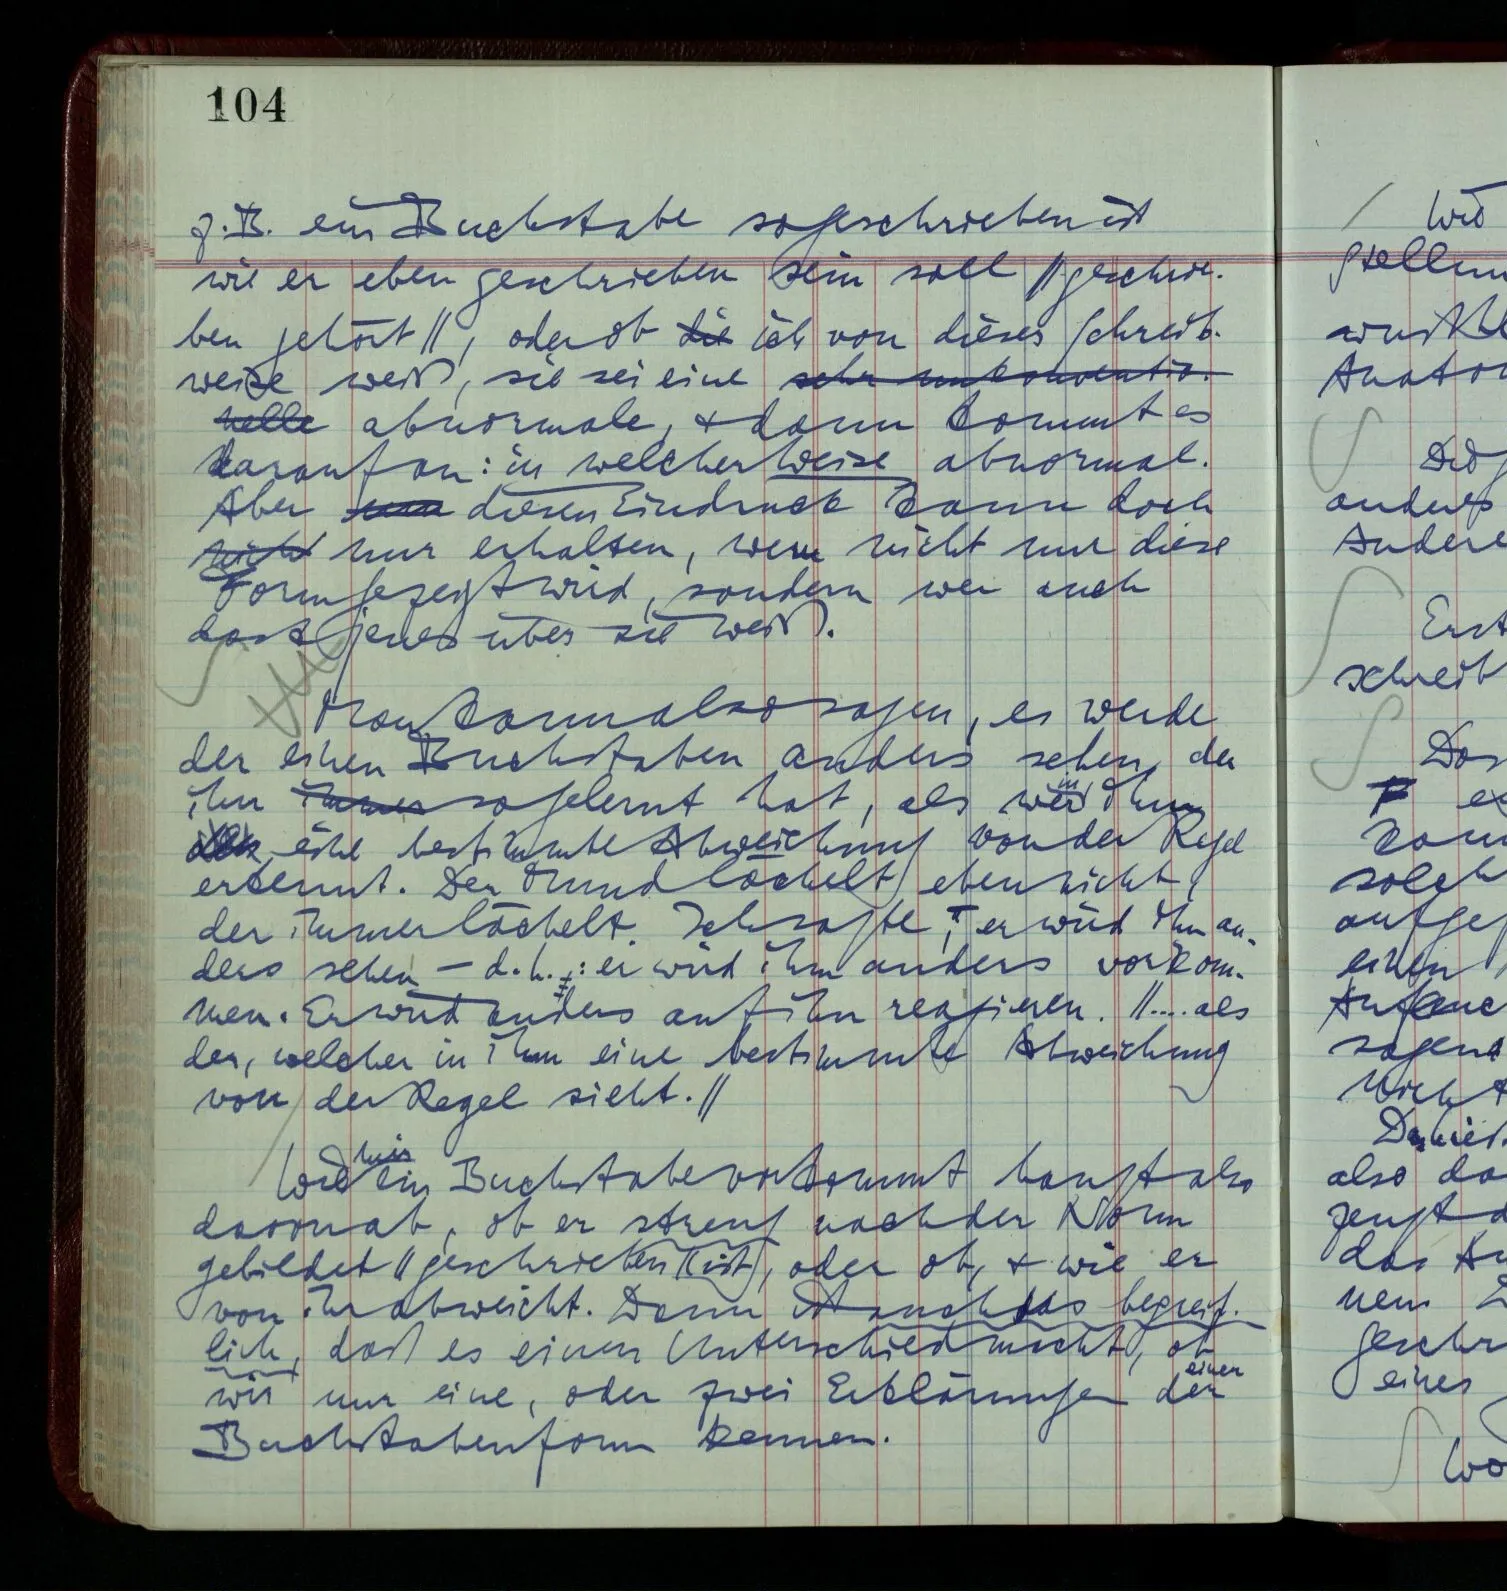 104
z.B. ein Buchstabe so geschrieben ist
wie er eben geschrieben sein soll // geschrie-
ben gehört //, oder ob die ich von dieser Schreib-
weise weiß, sie sei eine sehr unkonventio-
nelle abnormale, & dann kommt es
darauf an: in welcher Weise abnormal.
Aber diesen Eindruck kann doch
nicht nur erhalten, wem nicht nur diese
Form gezeigt wird, sondern wer auch
jenes über sie weiß.
Man kann also sagen, es werde
der einen Buchstaben anders sehen, der
ihn immer so gelernt hat, als wer in ihm
eine bestimmte Abweichung von der Regel
erkennt. Der Mund lächelt eben nicht,
der immer lächelt. Ich sagte, er wird ihn an-
ders sehen – d.h.: er wird ihm anders vorkom-
men. Er wird anders auf ihn reagieren. //.... als
der, welcher in ihm eine bestimmte Abweichung
von der Regel sieht. //
Wie mir ein Buchstabe vorkommt hängt also
davon ab, ob er streng nach der Norm
gebildet // geschrieben // ist, oder ob, & wie er
von ihr abweicht. Dann ist auch das begreif-
lich, daß es einen Unterschied macht, ob
wir nur eine, oder zwei Erklärungen der einer
Buchstabenform kennen.
Wie
Das
anders
Andere
Erst
schreib
F
solch
aufge
einen
sagen
Nicht
also da
zeugt d
das Au
nem
geschr
eines
Wo